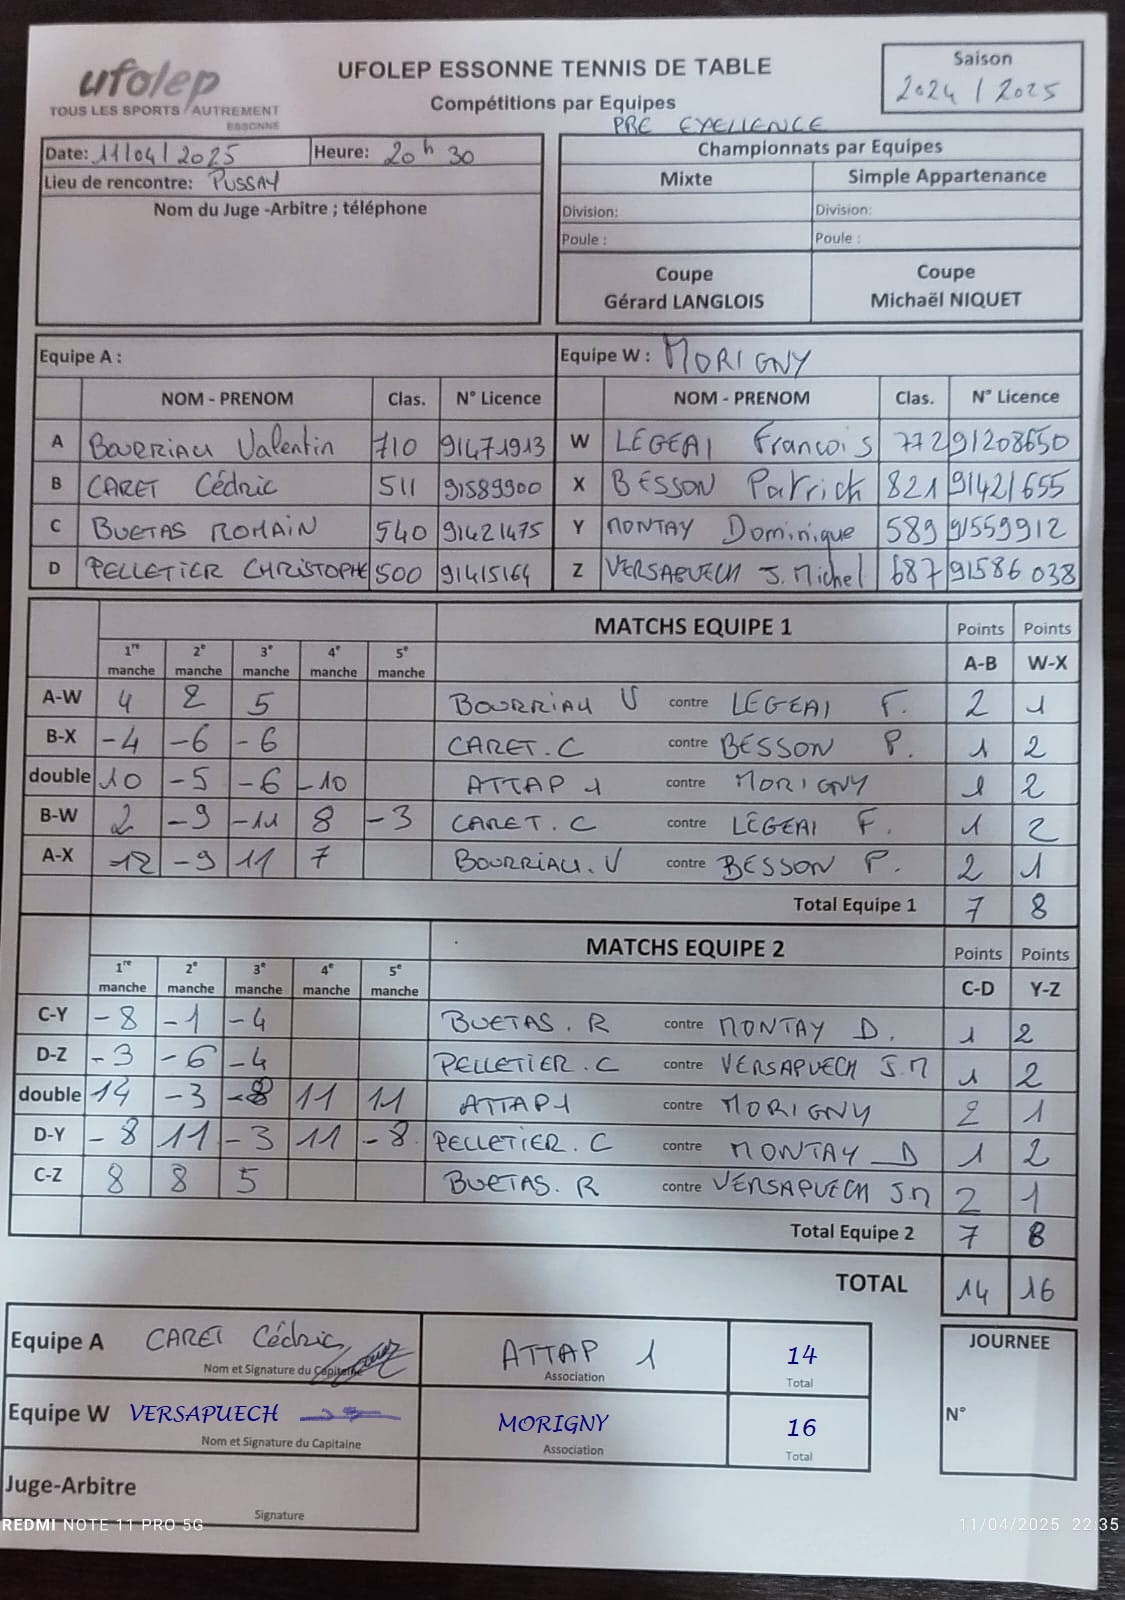 ufolep
TOUS LES SPORTS / AUTREMENT
ESSONNE
UFOLEP ESSONNE TENNIS DE TABLE
Compétitions par Equipes
PRE EXELLENCE
Saison
2024 / 2025
Date: 11/04/2025 Heure: 20h30
Lieu de rencontre: PUSSAY
Nom du Juge -Arbitre ; téléphone
Championnats par Equipes
Mixte Simple Appartenance
Division: Division:
Poule : Poule :
Coupe Coupe
Gérard LANGLOIS Michaël NIQUET
Equipe A : Equipe W : MORIGNY
NOM - PRENOM Clas. N° Licence NOM - PRENOM Clas. N° Licence
A BOURRIAU Valentin 710 91471913 W LEGEAI Francois 772 91208650
B CARET Cédric 511 91589900 X BESSON Patrick 821 91421655
C BUETAS ROMAIN 540 91421475 Y MONTAY Dominique 589 91559912
D PELLETIER CHRISTOPHE 500 91415164 Z VERSAPUECH J.Michel 687 91586038
MATCHS EQUIPE 1 Points Points
1re manche 2e manche 3e manche 4e manche 5e manche A-B W-X
A-W 4 2 5 BOURRIAU V contre LEGEAI F. 2 1
B-X -4 -6 -6 CARET.C contre BESSON P. 1 2
double 10 -5 -6 -10 ATTAP 1 contre MORIGNY 1 2
B-W 2 -9 -11 8 -3 CARET.C contre LEGEAI F. 1 2
A-X -12 -9 11 7 BOURRIAU.V contre BESSON P. 2 1
Total Equipe 1 7 8
MATCHS EQUIPE 2 Points Points
1re manche 2e manche 3e manche 4e manche 5e manche C-D Y-Z
C-Y -8 -1 -4 BUETAS.R contre MONTAY D. 1 2
D-Z -3 -6 -4 PELLETIER.C contre VERSAPUECH J.M 1 2
double 14 -3 -8 11 11 ATTAP 1 contre MORIGNY 2 1
D-Y -8 11 -3 11 -8 PELLETIER.C contre MONTAY D 1 2
C-Z 8 8 5 BUETAS.R contre VERSAPUECH J.M 2 1
Total Equipe 2 7 8
TOTAL 14 16
Equipe A CARET Cédric ATTAP 1 14
Nom et Signature du Capitaine Association Total
Equipe W VERSAPUECH MORIGNY 16
Nom et Signature du Capitaine Association Total
Juge-Arbitre
Signature
JOURNEE
N°
REDMI NOTE 11 PRO 5G
11/04/2025 22:35